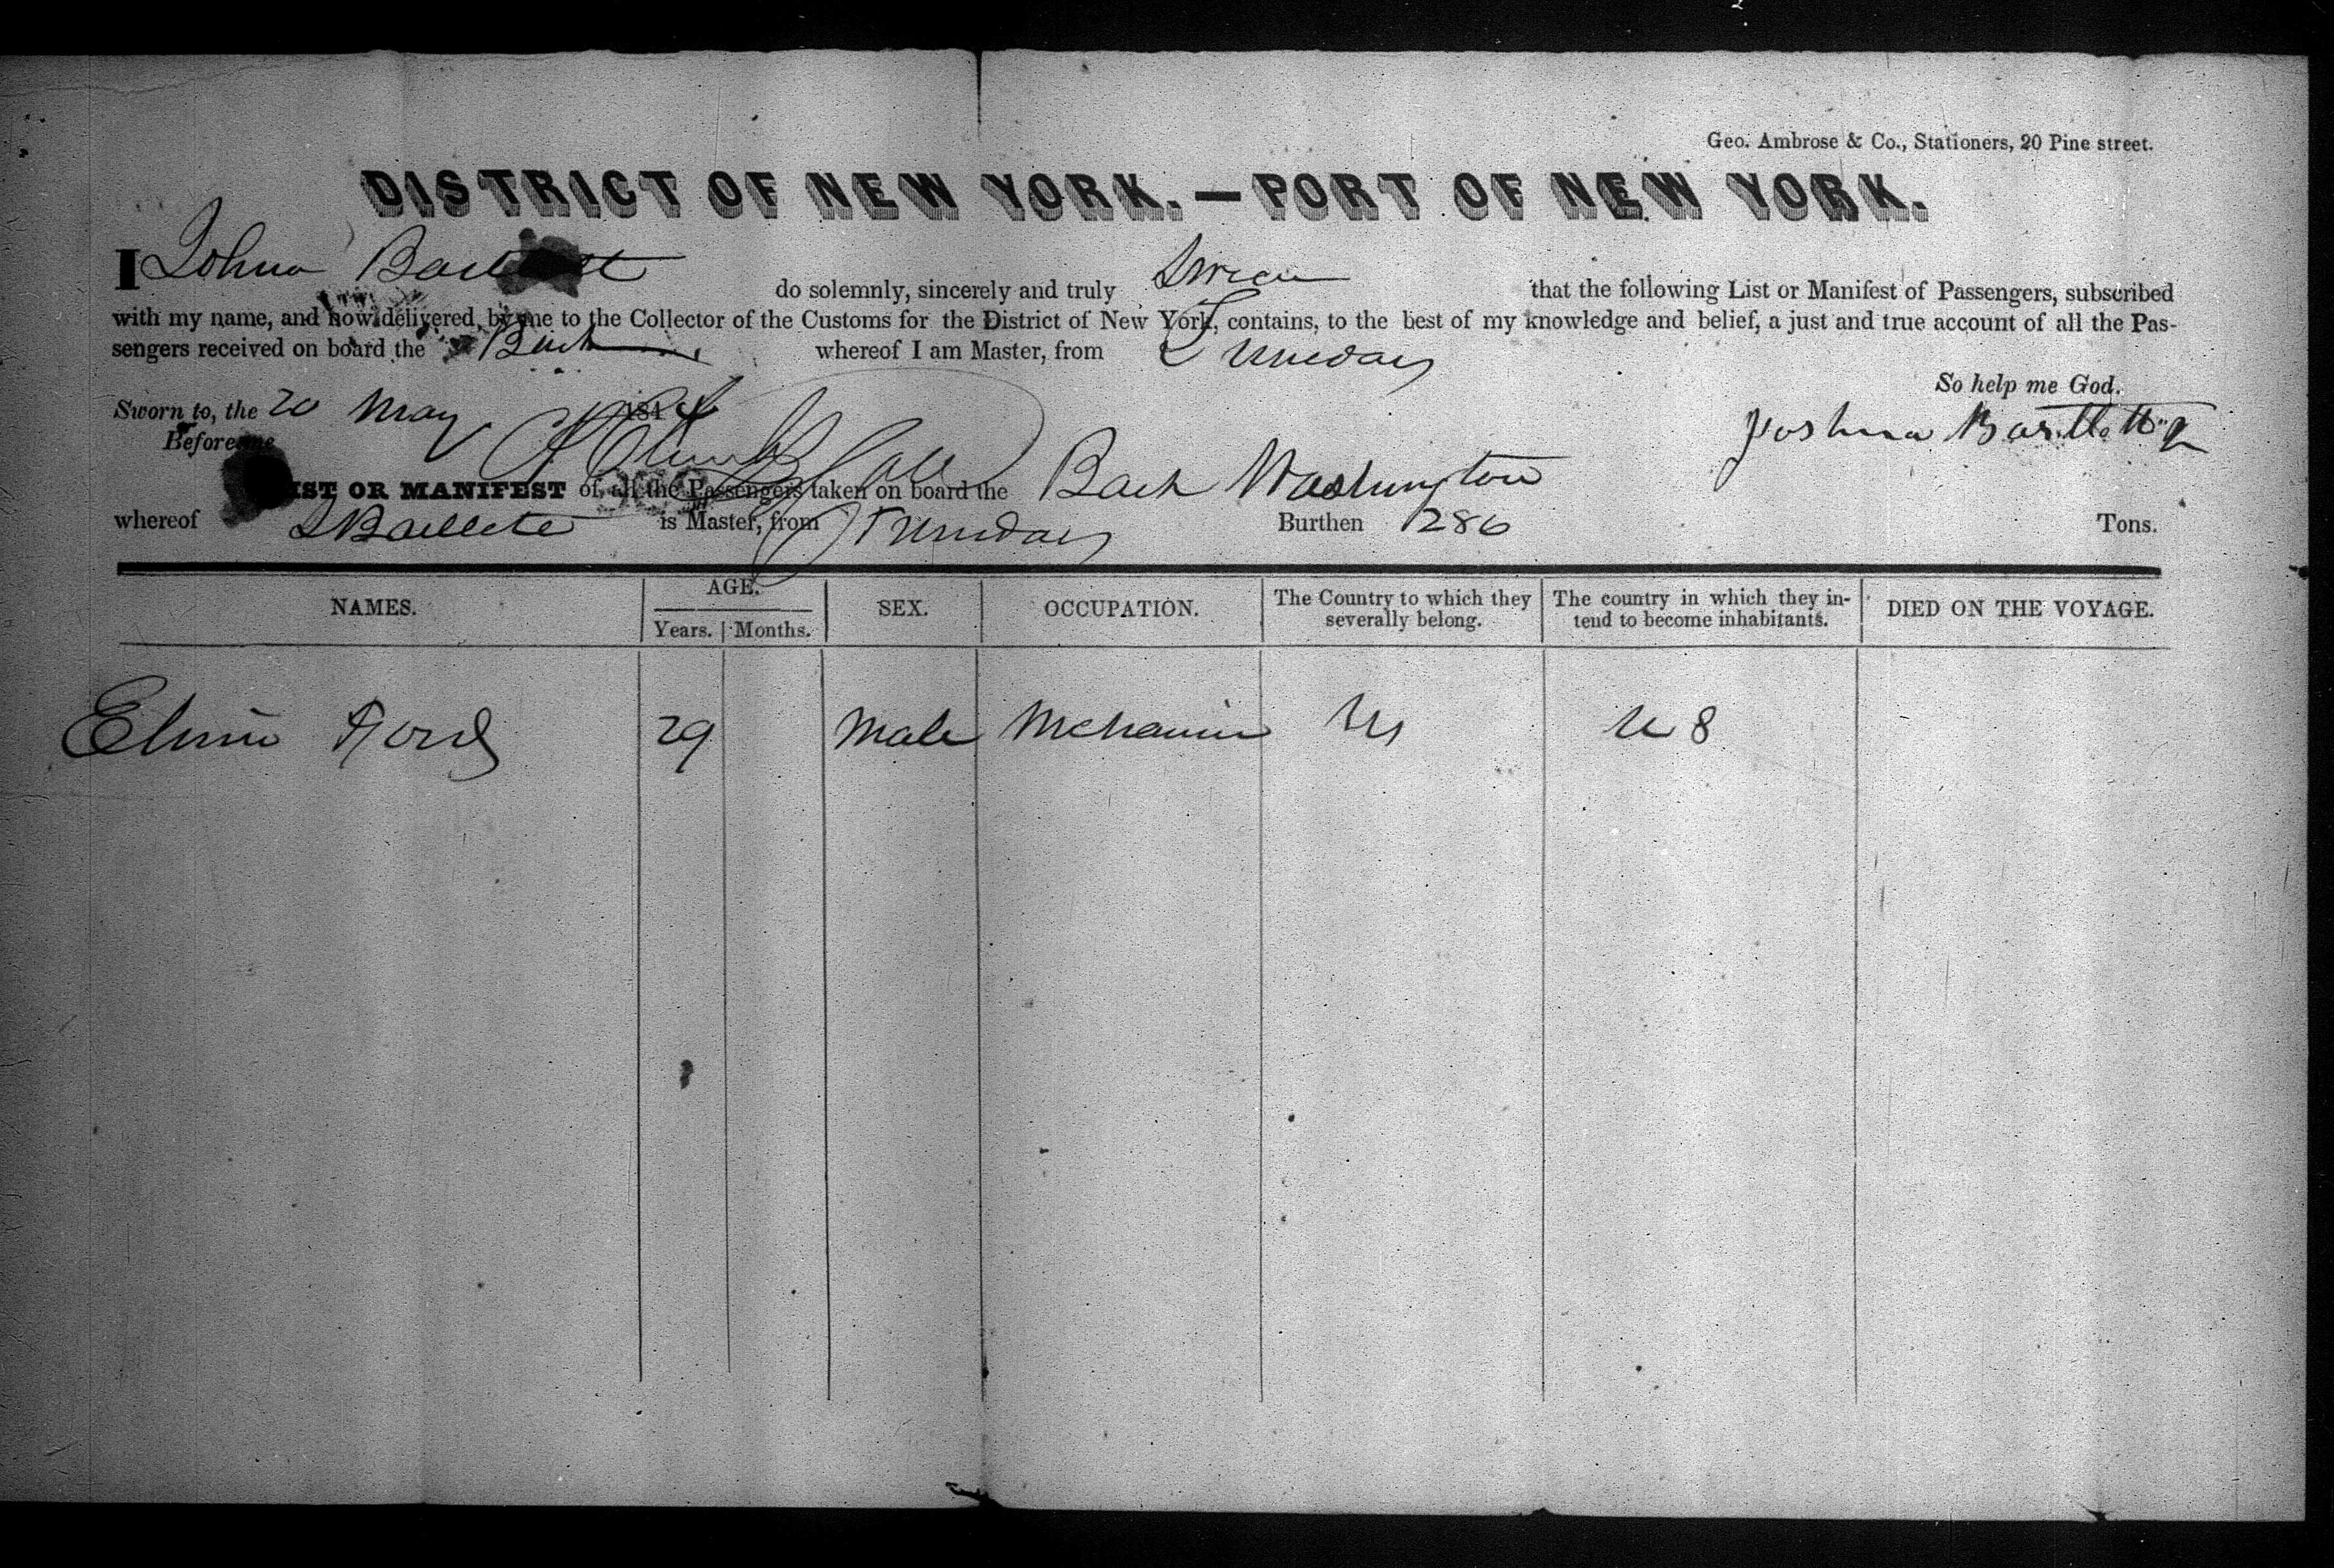 Geo. Ambrose & Co., Stationers, 20 Pine street.
DISTRICT OF NEW YORK.—PORT OF NEW YORK.
I do solemnly, sincerely and truly Swear that the following List or Manifest of Passengers, subscribed
with my name, and now delivered by me to the Collector of the Customs for the District of New York, contains, to the best of my knowledge and belief, a just and true account of all the Pas-
sengers received on board the Bark whereof I am Master, from Trinidad
So help me God.
Sworn to, the 20 May 184
Joshua Bartlett Jr
Before me
LIST OR MANIFEST of all the Passengers taken on board the Bark Washington
whereof is Master, from Trinidad Burthen 286 Tons.
NAMES. AGE. SEX. OCCUPATION. The Country to which they severally belong. The country in which they in-tend to become inhabitants. DIED ON THE VOYAGE.
Years. Months.
Ford 29 Male Mechanic US U S